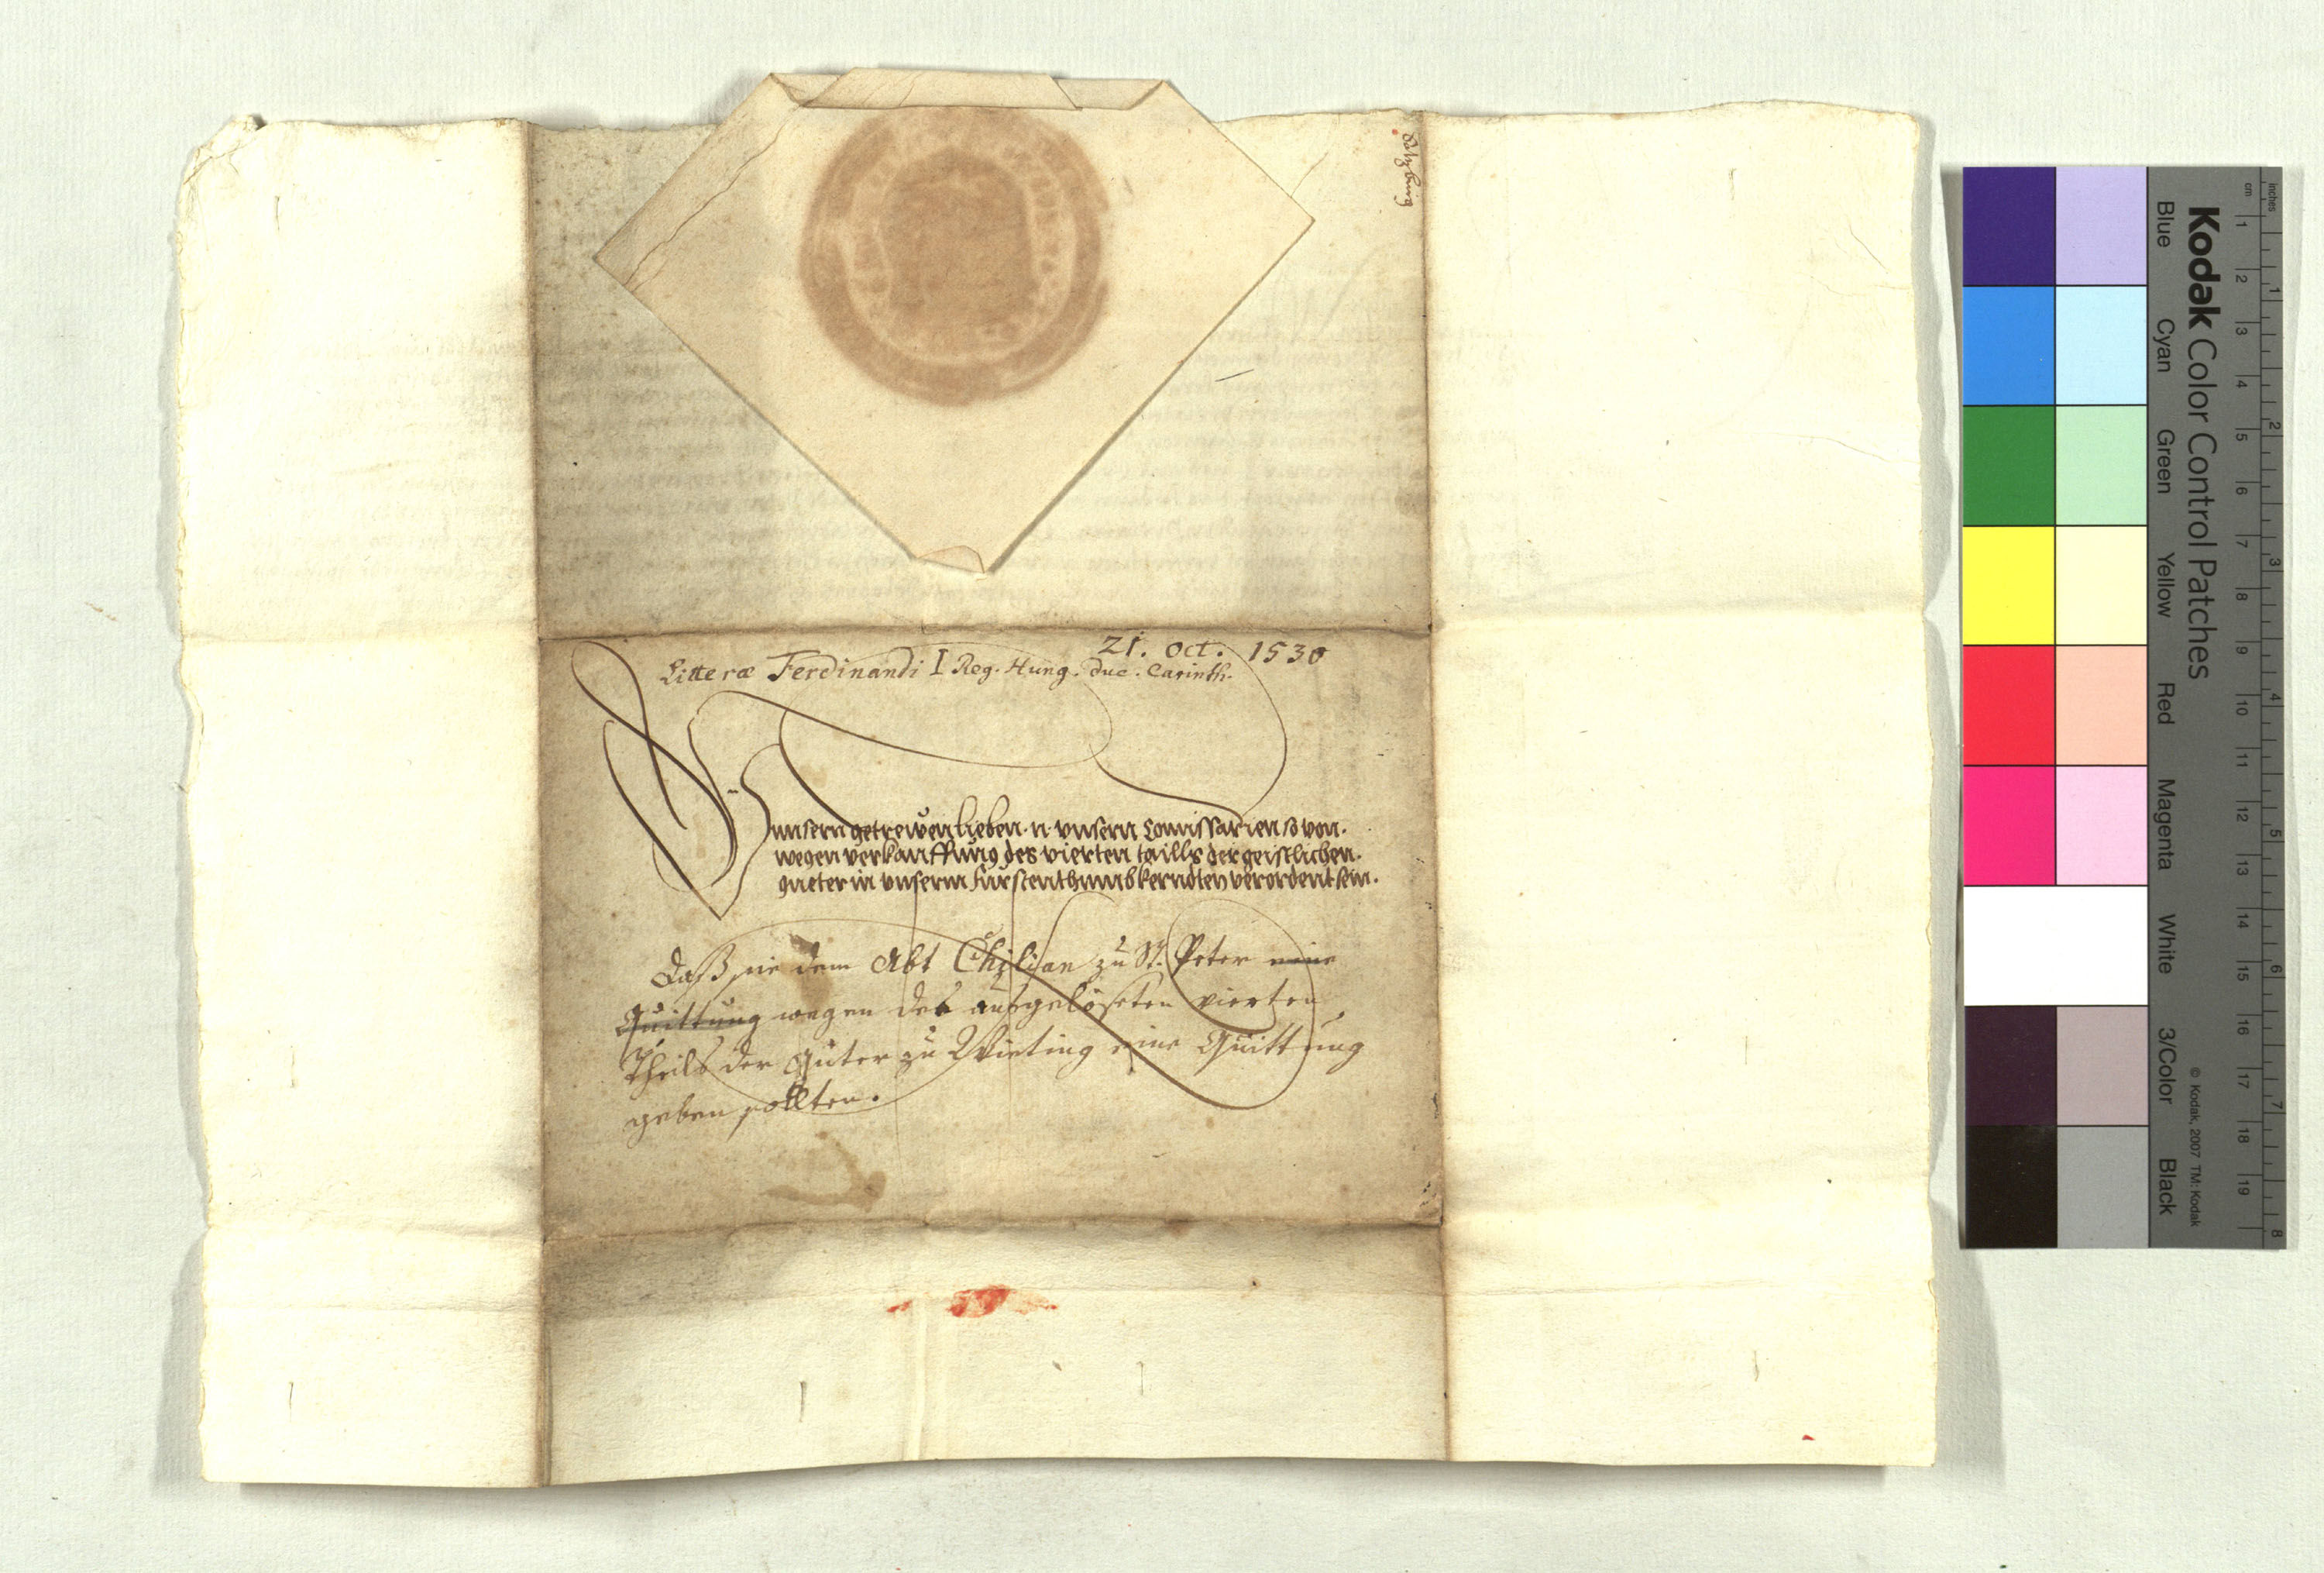 Salzburg
21. Oct. 1530
Litteræ Ferdinandi I Reg. Hung. Duc. Carinth.
unsern getrewen lieben. n. unsern Comissarien so von.
wegen verkauffung des vierten taills der geistlichen.
gueter in unserm Furstenthumb kerndten verordent sein.
Daß sie dem Abt Chilian zu St. Peter eine
Quittung wegen des ausgelösten vierten
Theils der Güter zu Wieting eine Quittung
geben sollten.
Kodak Color Control Patches
Blue Cyan Green Yellow Red Magenta White 3/Color Black
© Kodak, 2007 TM: Kodak
inches 1 2 3 4 5 6 7 8
cm 1 2 3 4 5 6 7 8 9 10 11 12 13 14 15 16 17 18 19